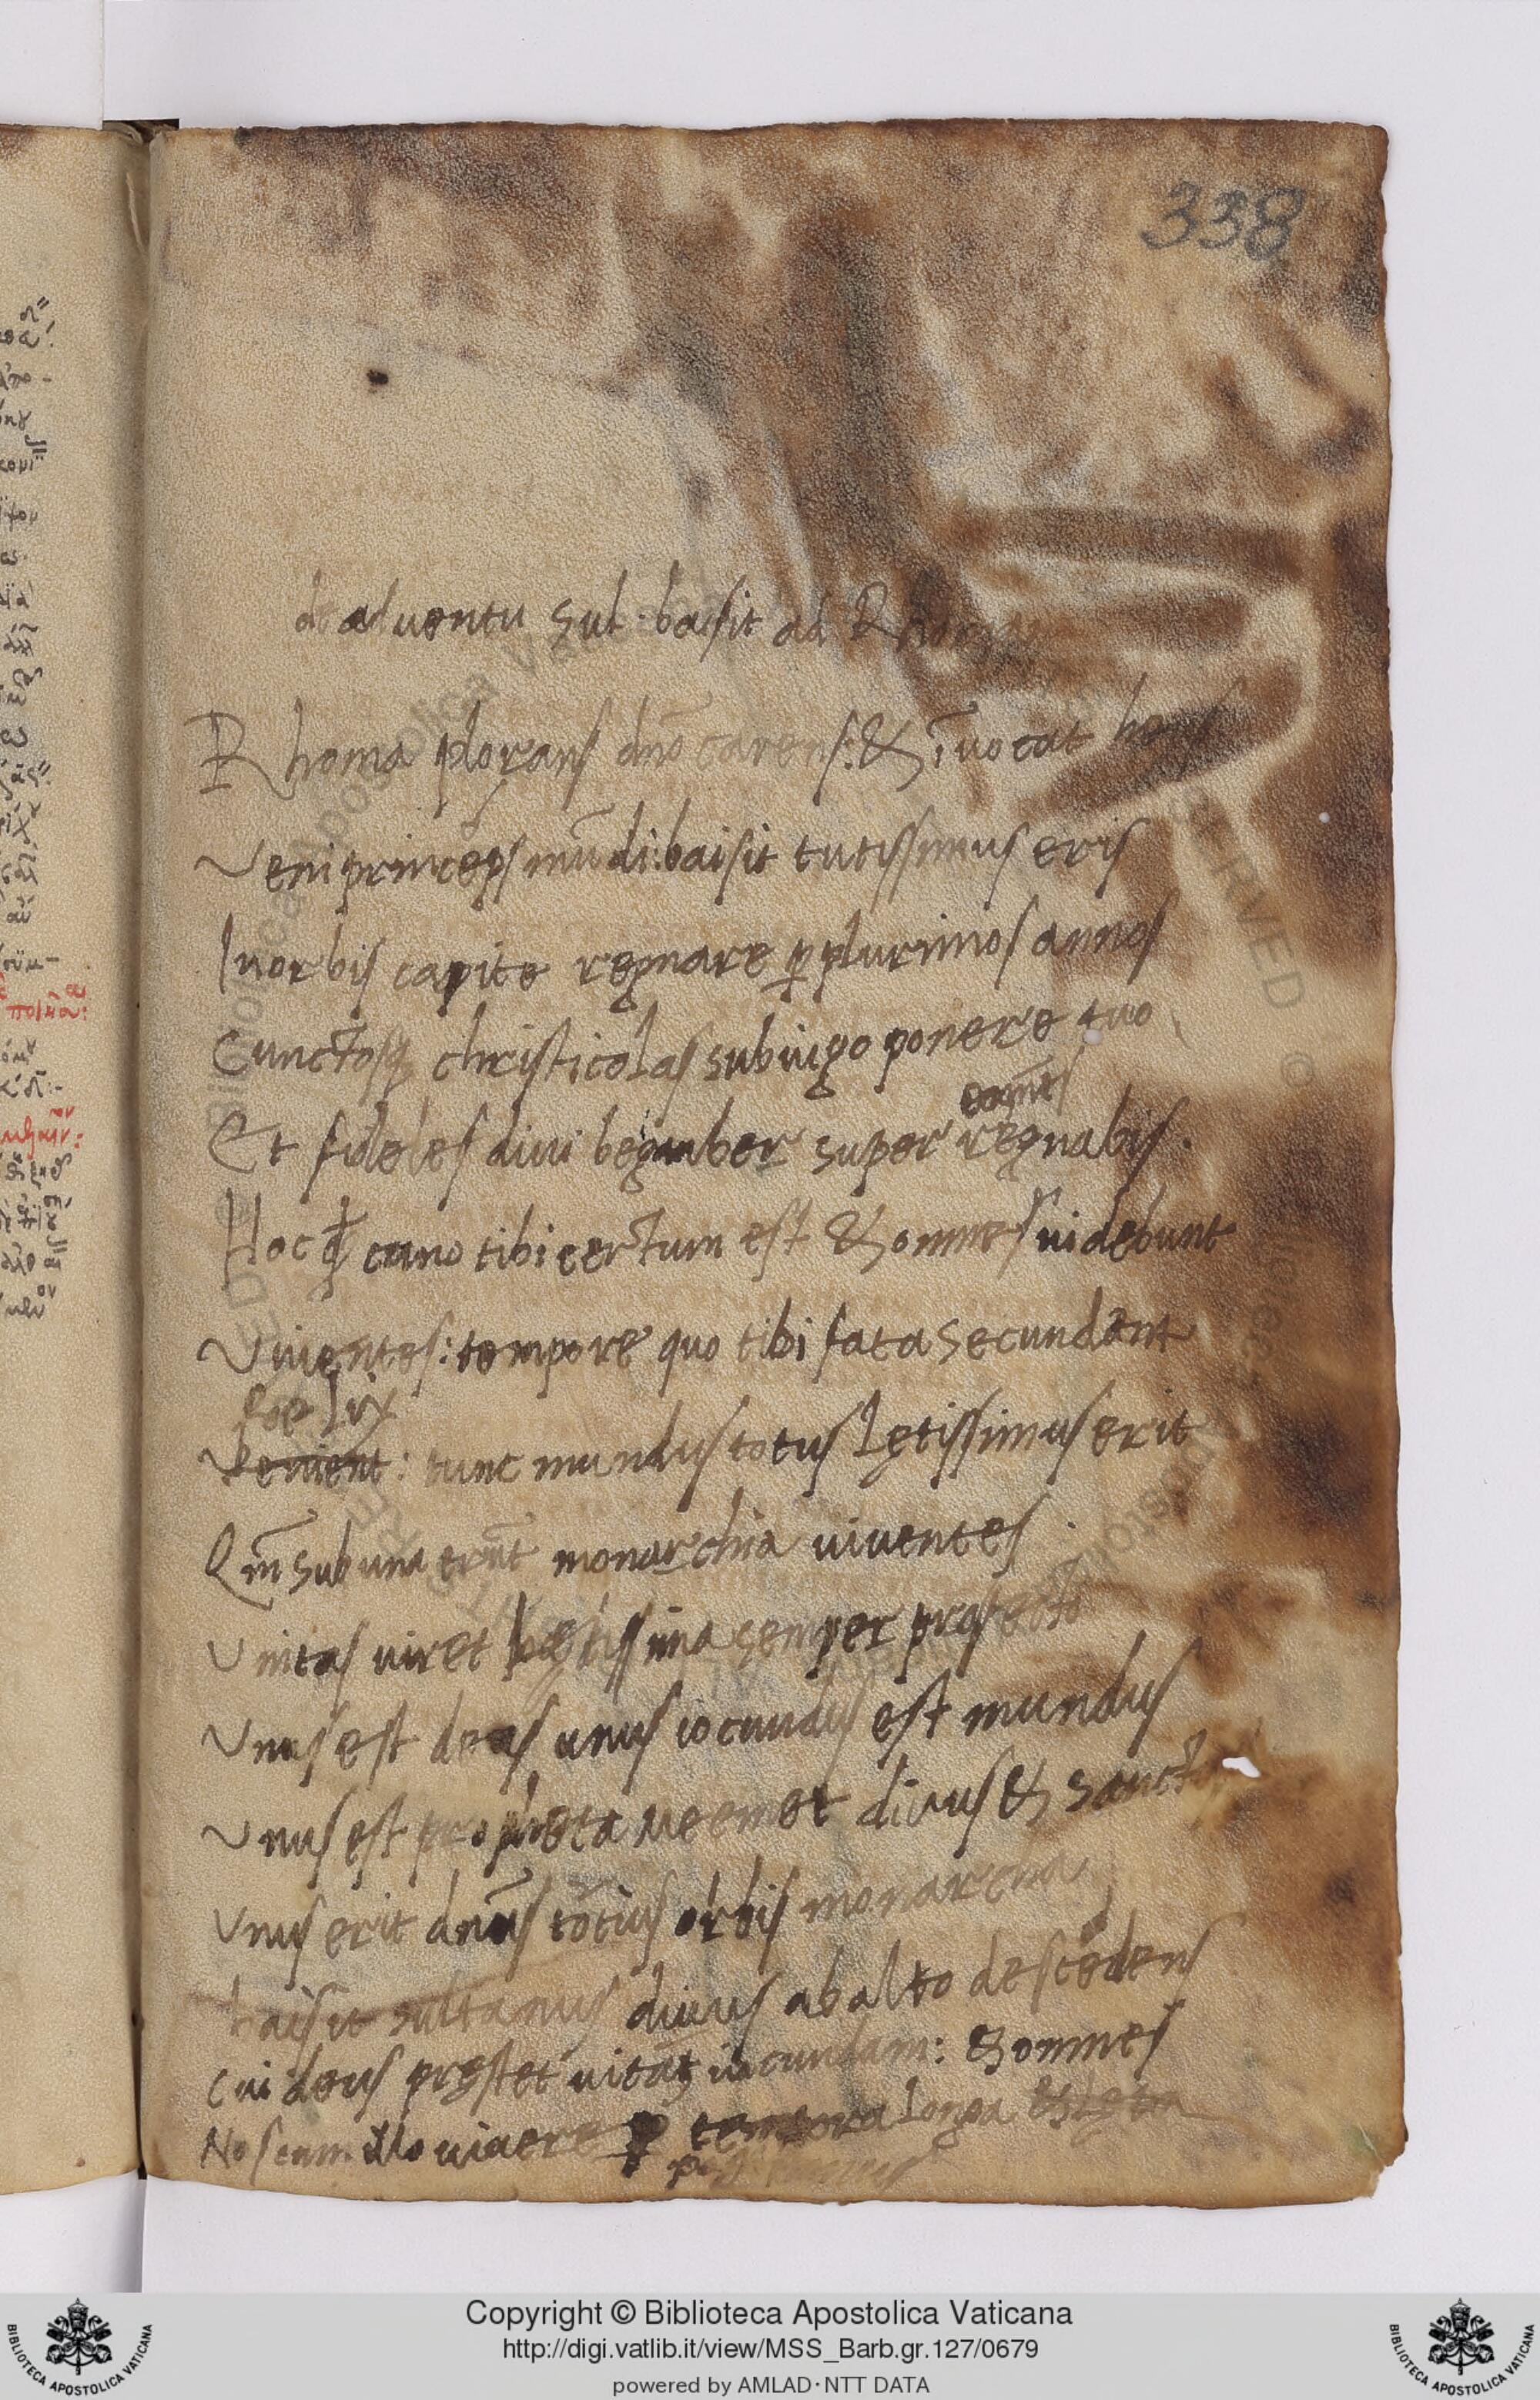 338
de aduentu sul. baisit ad Rhomam
Rhoma plorans dño carens: & ĩuocat hor
Veni princeps mũdi: baisit tutissimus eris
In orbis capite regnare ꝑ plurimos annos
Cunctosq christicolas sub iugo ponere tuo
oam̃s
Et fideles diui begamber super regnabis.
Hoc qd cano tibi certum est & omnes uidebunt
Viuentes: tempore quo tibi fata secundent
foelix
Venient: tunc mundus totus lętissimus erit
Qm̃ sub una erũt monarchia uiuentes.
Vnitas uiret lætissima semper profecto
Vnus est deus unus iocundus est mundus
Vnus est propheta meemet diuus & sanctus
Vnus erit dñus totius orbis monarcha
baisit sultanus diuus ab alto descẽdens
Cui deus pręstet uitam iucundam: & omnes
Nos cum illo uiuere ꝑ tempora longa & lęta
Copyright © Biblioteca Apostolica Vaticana
http://digi.vatlib.it/view/MSS_Barb.gr.127/0679
powered by AMLAD·NTT DATA
BIBLIOTECA APOSTOLICA VATICANA
BIBLIOTECA APOSTOLICA VATICANA